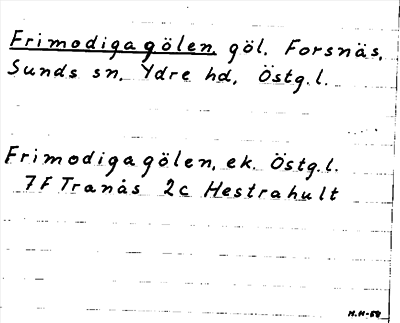 Frimodigagölen, göl. Forsnäs,
Sunds sn, Ydre hd, Östg.l.
Frimodigagölen, ek. Östg.l.
7F Tranås 2c Hestrahult